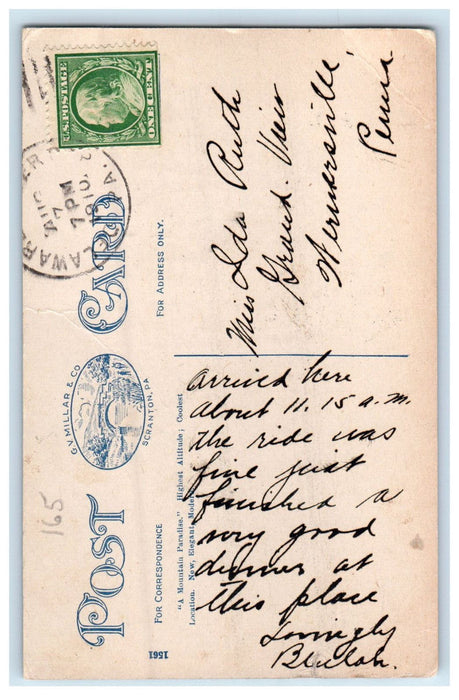 U.S. POSTAGE
ONE CENT
AUG
17
7 PM
1910
PA.
POST CARD
G.V. MILLAR & CO
SCRANTON, PA
FOR ADDRESS ONLY.
Miss Ida Ruth
Grand View
Wernersville,
Penna
FOR CORRESPONDENCE
"A Mountain Paradise." Highest Altitude; Coolest
Location. New, Elegant, Mode
arrived here
about 11.15 a.m.
the ride was
fine just
finished a
very good
dinner at
this place
Lovingly
Beulah.
165
1561